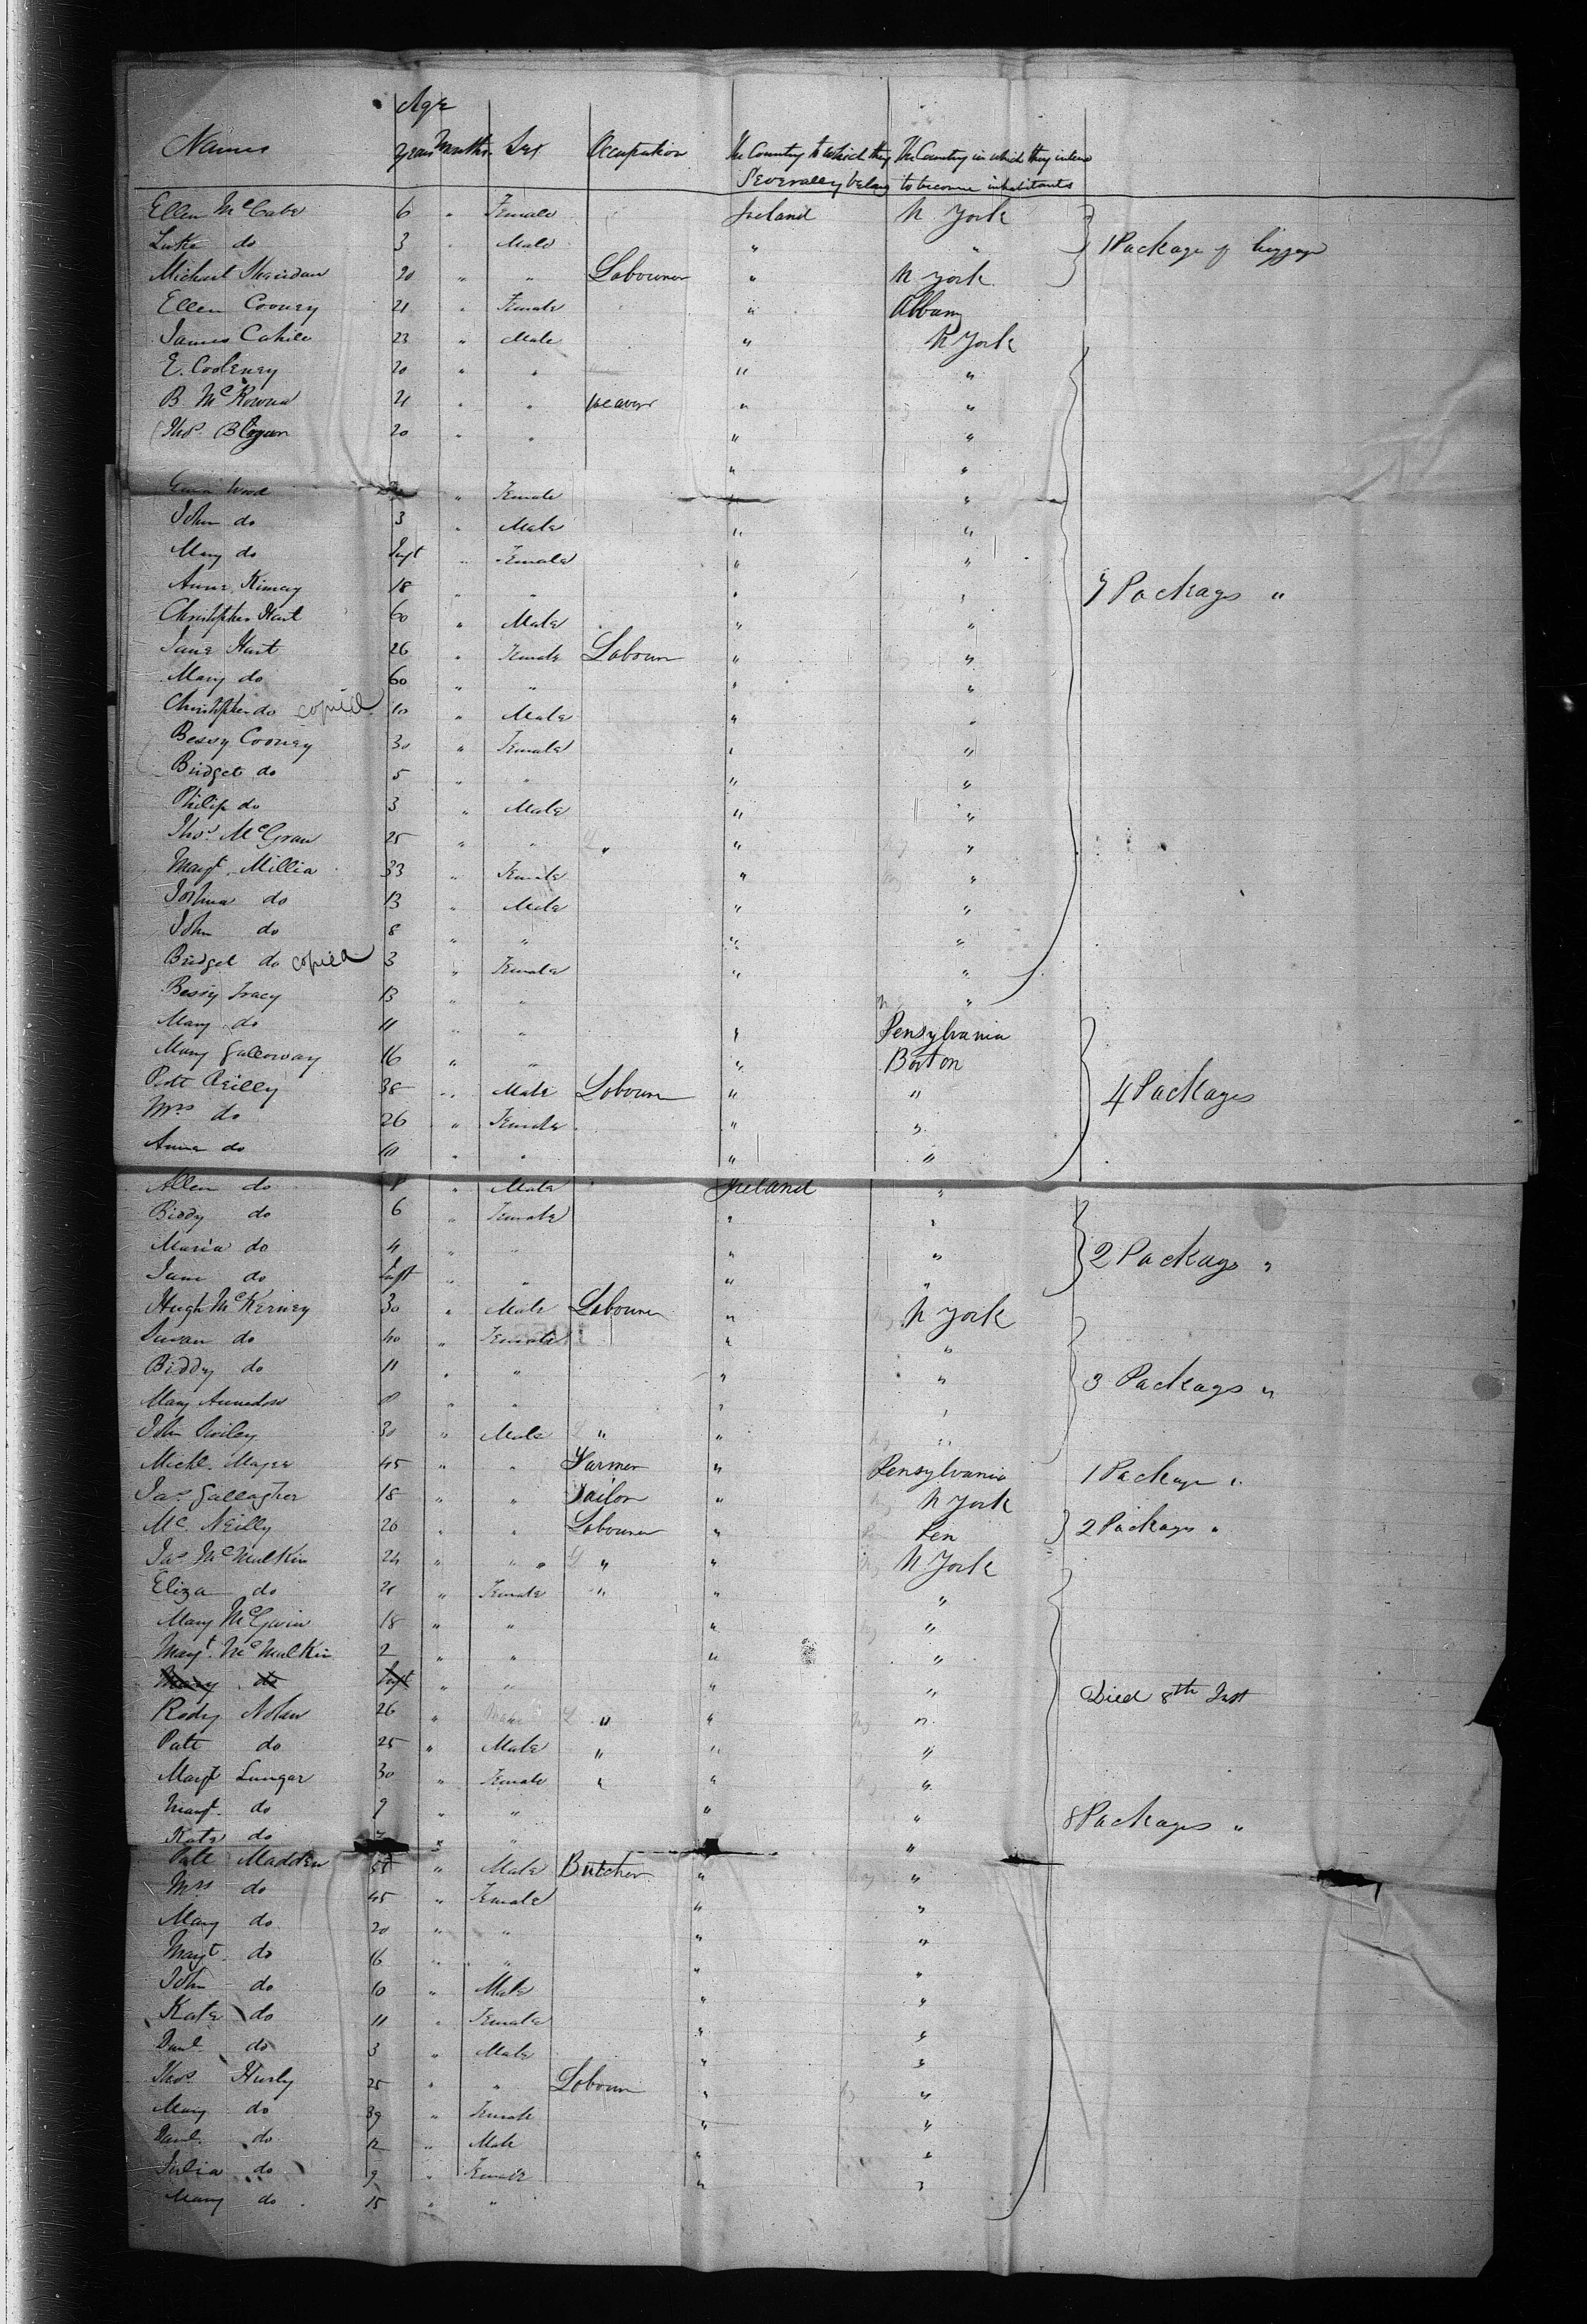 Age
Names years Months Sex Occupation The Country to which they The Country in which they intend
Severally belong to become inhabitants
Ellen McCabe 6 " Female Ireland N York
Luke do 3 " Male " " 1 Package of luggage
Michael Sheridan 20 " " Labourer " N York
Ellen Cooney 21 " Female " Albany
James Cahill 23 " Male " N York
E. 20 " " " "
B. McKowna 21 " " weaver " "
Thos. 20 " " " "
" "
Wood " Female " "
John do 3 " Male " "
Mary do Inft " Female " "
Anne 18 " " " " 7 Packags "
Christopher Hart 60 " Male " "
Jane Hart 26 " Female Labour " "
Mary do 60 " " " "
Christopher do copied 10 " Male " "
Bessy Cooney 30 " Female " "
Bridget do 5 " " " "
Philip do 3 " Male " "
Thos. McGraw 25 " " " " "
Margt. Millia 33 " Female " "
Joshua do 13 " Male " "
John do 8 " " " "
Bridget do copied 3 " Female " "
Bessy Tracy 13 " " "
Mary do 11 " " " Pensylvania
Mary Galloway 16 " " " Boston
Patt Reilly 38 " Male Labour " " 4 Packages
Mrs do 26 " Female " "
Anna do 10 " " " "
Allen do 8 " Male Ireland "
Biddy do 6 " Female " "
Maria do 4 " " " " 2 Packags "
Jane do Inft " " " "
Hugh McKerney 30 " Male Labourer " N York
Susan do 40 " Female " "
Biddy do 11 " " " " 3 Packags "
Mary 8 " " " "
John 30 " Male " " "
Michl. 45 " " Farmer " Pensylvania 1 Package "
Jas. Gallagher 18 " " Tailor " N York
Mc. Neilly 26 " " Labourer " Pen 2 Packags "
Jas McMulkin 24 " " " " N York
Eliza do 21 " Female " " "
Mary McGwin 18 " " " "
Margt. McMulkin 2 " " " "
Mary do Inft " " " " Died 8th Inst
Rody Nolan 26 " " " "
Patt do 25 " Male " " "
Margt Lungar 30 " Female " " "
Margt. do 9 " " " " 8 Packages "
Kate do " " "
Patt Madden 55 " Male Butcher " "
Mrs do 45 " Female " "
Mary do 20 " " " "
Margt. do 16 " " " "
John do 10 " Male " "
Kate do 11 " Female " "
Danl. do 3 " Male " "
Thos. Hurly 25 " " Labour " "
Mary do 39 " Female " "
Danl. do 12 " Male " "
Julia do 9 " Female " "
Mary do 15 " "